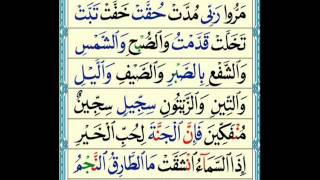 مَرُّوا رَبِّى مُدَّتْ حُقَّتْ خَفَّتْ تَبَّتْ
تَخَلَّتْ قَدَّمْتُ وَالصُّبْحِ وَالشَّمْسِ
وَالشَّفْعِ بِالصَّبْرِ وَالصَّيْفِ وَالَّيْلِ
وَالتِّيْنِ وَالزَّيْتُوْنِ سِجِّيْلٍ سِجِّيْنٌ
مُنْفَكِّيْنَ فَإِنَّ الْجَنَّةَ لِحُبِّ الْخَيْرِ
إِذَا السَّمَآءُ انْشَقَّتْ مَا الطَّارِقُ النَّجْمُ